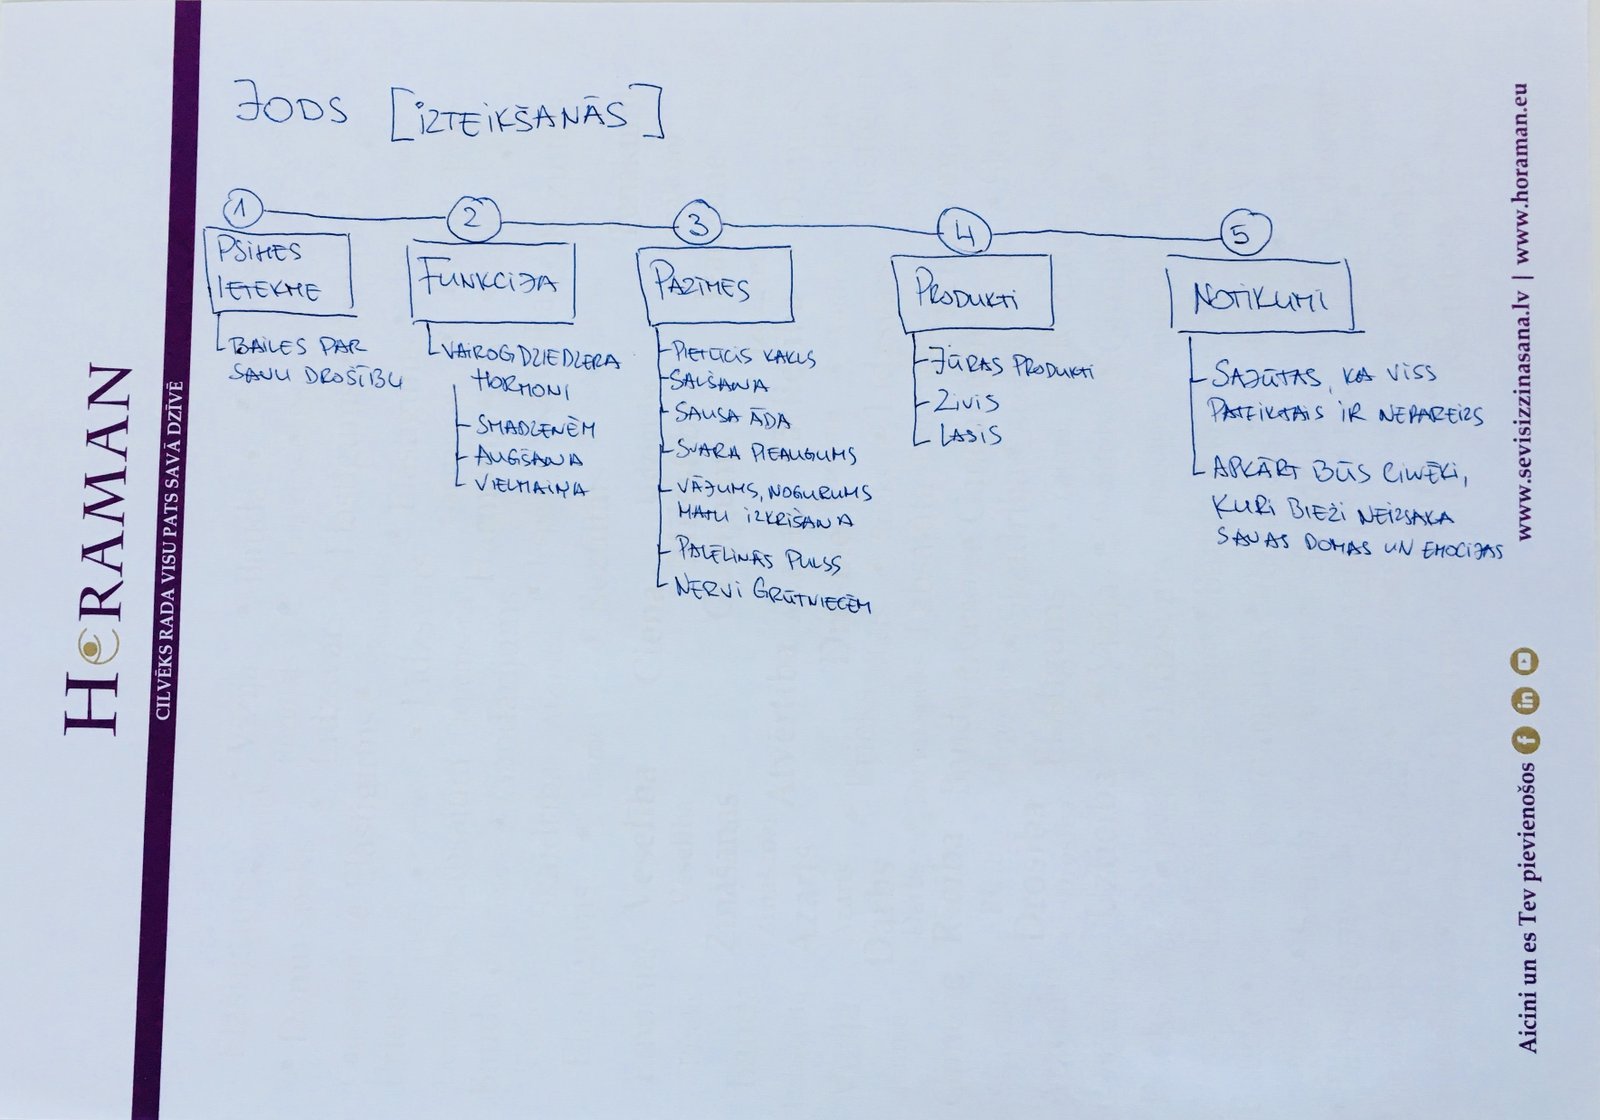 JODS [IZTEIKŠANĀS]
1
PSIHES
IETEKME
BAILES PAR
SAVU DROŠĪBU
2
FUNKCIJA
VAIROGDZIEDZERA
HORMONI
SMADZENĒM
AUGŠANA
VIELMAIŅA
3
PAZĪMES
PIETŪCIS KAKLS
SALŠANA
SAUSA ĀDA
SVARA PIEAUGUMS
VĀJUMS, NOGURUMS
MATU IZKRIŠANA
PALĒLINĀS PULSS
NERVI GRŪTNIECĒM
4
PRODUKTI
JŪRAS PRODUKTI
ZIVIS
LASIS
5
NOTIKUMI
SAJŪTAS, KA VISS
PATEIKTAIS IR NEPAREIZS
APKĀRT BŪS CILVĒKI,
KURI BIEŽI NEIZSAKA
SAVAS DOMAS UN EMOCIJAS
HORAMAN
CILVĒKS RADA VISU PATS SAVĀ DZĪVĒ
Aicini un es Tev pievienošos f in www.sevisizzinasana.lv | www.horaman.eu